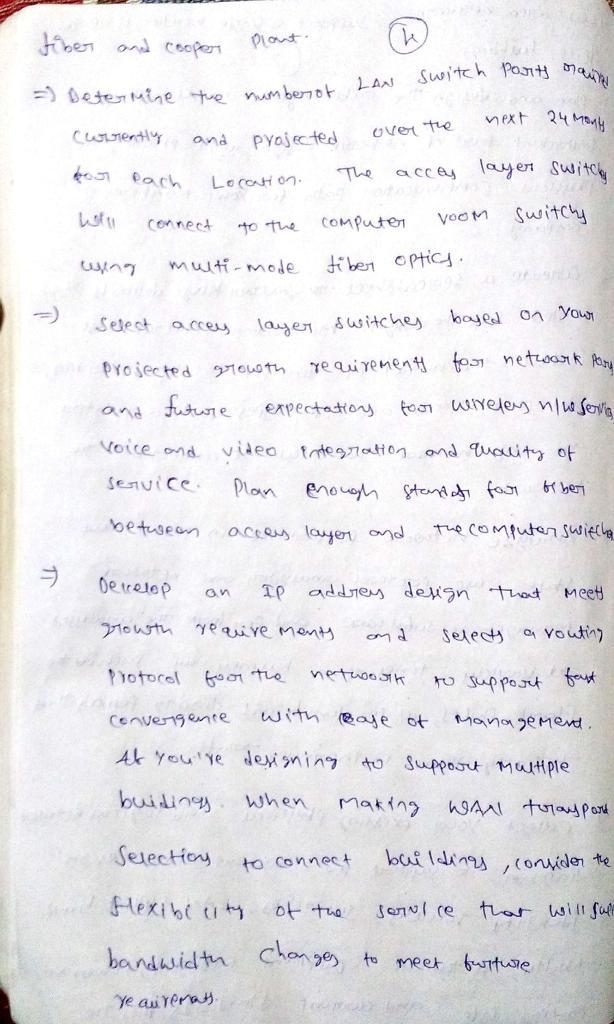 fiber and cooper plant. (4)
=) Determine the number of LAN switch ports required
currently and projected over the next 24 months
for each Location. The access layer switches
will connect to the computer room switches
using multi-mode fiber optics.
=) Select access layer switches based on your
projected growth requirements for network ports
and future expectations for wireless n/w service,
voice and video integration and quality of
service. Plan enough stands for fiber
between access layer and the computer switches
=) Develop an IP address design that meets
growth requirements and selects a routing
protocol for the network to support fast
convergence with ease of management.
If you're designing to support multiple
buidings. When making WAN transport
selections to connect buildings, consider the
flexibility of the service that will suit
bandwidth changes to meet furture
requirements.